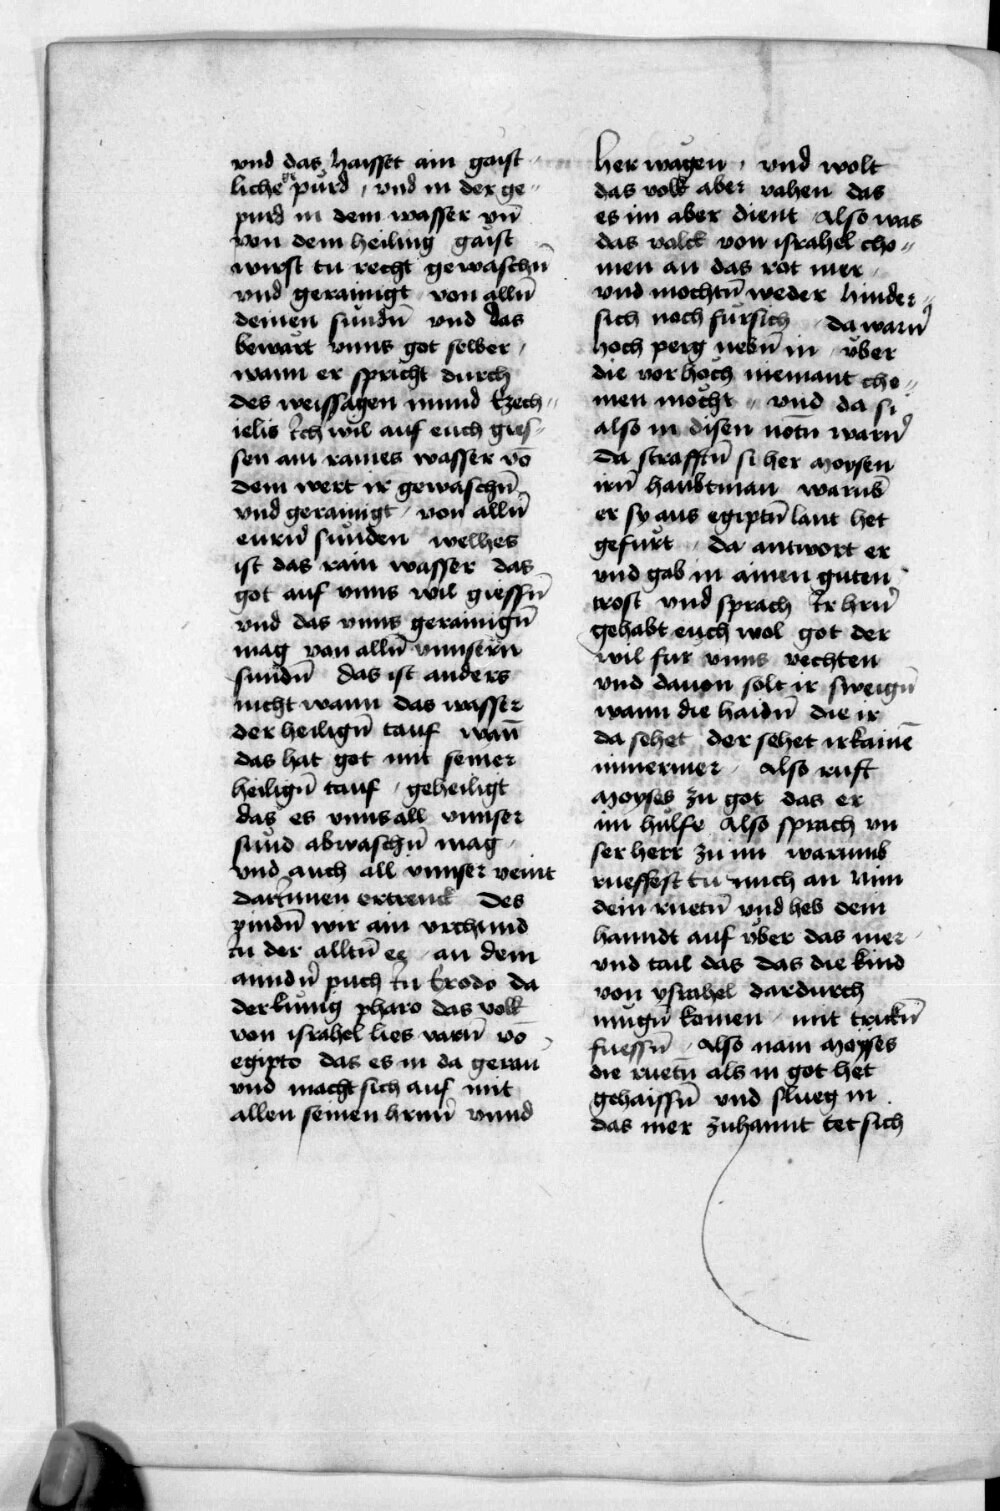 vnd das haisset ain gaist=
liche gepurd / vnd in der ge=
purd in dem wasser vn̄
von dem heiling gaist
wirst tu recht gewaschn̄
vnd gerainigt von alln̄
deinen sundn̄ vnd das
bewart vnns got selber /
wann er spricht durch
des weissagen mund Ezech=
ielis Ich wil auf euch gies=
sen ain raines wasser vō
dem wert ir gewaschn̄
vnd gerainigt / von alln̄
eurn̄ sunden welhes
ist das rain wasser das
got auf vnns wil giessn̄
vnd das vnns gerainign̄
mag von alln̄ vnnsern
sundn̄ das ist anders
nicht wann das wasser
der heilign̄ tauf wan̄
das hat got mit seiner
heilign̄ tauf / geheiligt
das es vnns all vnnser
sund abwaschn̄ mag /
vnd auch all vnnser veint
darInnen ertrenck des
pindn̄ wir ain vrchund
In der alltn̄ ee / an dem
anndn̄ puch In Exodo da
der kunig pharo das volk
von israhel lies varn̄ vō
egipto das es in da gerau
vnd macht sich auf mit
allen seinen hrnn̄ vnnd
her wagen / vnd wolt
das volk aber vahen das
es im aber dient Also was
das volck von israhel cho=
men an das rot mer /
vnd mochtn̄ weder hinder=
sich noch fursich da warn̄
hoch perg nebn̄ in / vber
die vor hoch niemant cho=
men mocht = vnd da si
also in disen notn̄ warn̄
da strafftn̄ si her Moysen
irn̄ haubtman warub̄
er sy aus egiptn̄ lant het
gefurt / da antwort er
vnd gab in ainen guten
trost vnd sprach Ir hrn̄
gehabt euch wol got der
wil fur vnns vechten
vnd dauon solt ir sweign̄
wann die haidn̄ die ir
da sehet der sehet ir kainē
nimermer / Also ruft
Moyses zu got das er
im hulfe Also sprach vn
ser herr zu im warumb
rueffest tu mich an nim
dein ruetn̄ vnd heb dein
hanndt auf vber das mer /
vnd tail das das die kind
von ysrahel dardurch
mugn̄ komen / mit truckn̄
fuessn̄ / Also nam Moyses
die ruetn̄ als in got het
gehaissn̄ vnd slueg in
das mer zuhannt tet sich